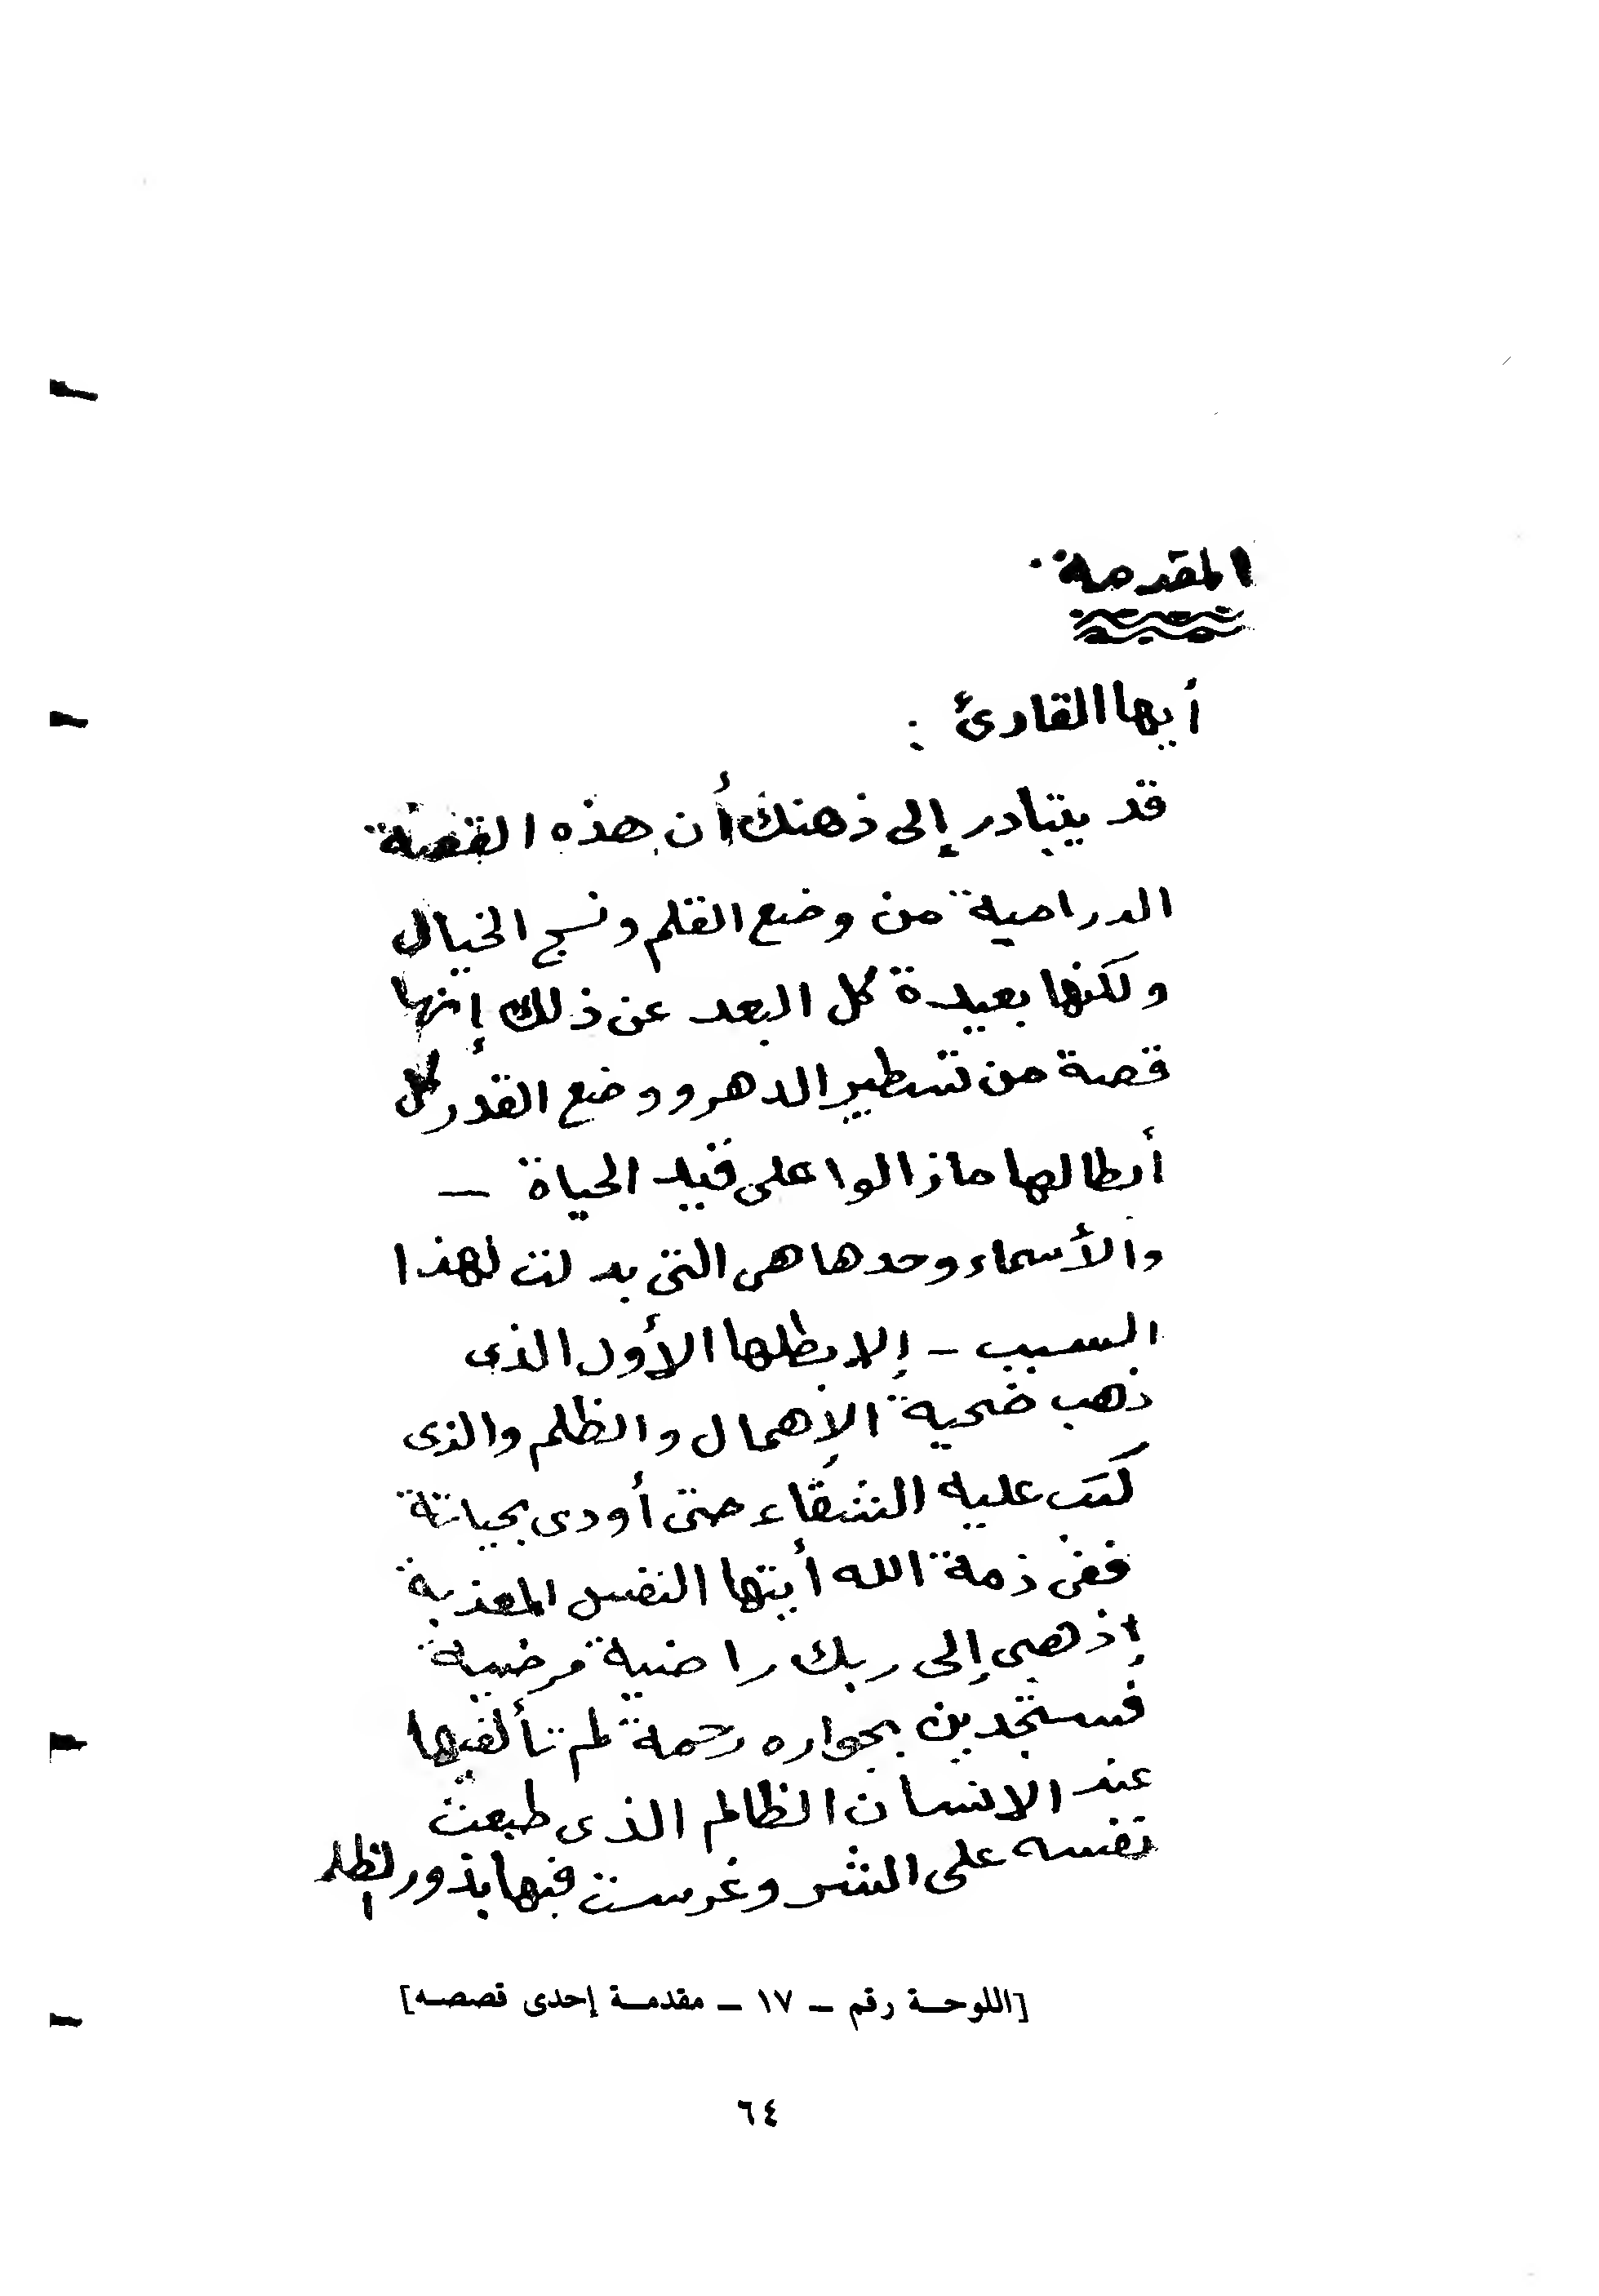 المقدمة
أيها القارئ :
قد يتبادر إلى ذهنك أن هذه القصة
الدرامية من وضع القلم ونسج الخيال
ولكنها بعيدة كل البعد عن ذلك إنها
قصة من تسطير الدهر ووضع القدر كل
أبطالها مازالوا على قيد الحياة –
والأسماء وحدها هى التى بدلت لهذا
السبب – إلا بطلها الأول الذى
ذهب ضحية الإهمال والظلم والذى
كتب عليه الشقاء حتى أودى بحياتة
ففى ذمة الله أيتها النفس المعذبة
إذهبى إلى ربك راضية مرضية
فستجدين بجواره رحمة لم تألفيها
عند الانسان الظالم الذى طبعت
نفسه على الشر وغرست فيها بذور الظلم
[اللوحة رقم – ١٧ – مقدمة إحدى قصصه]
٦٤